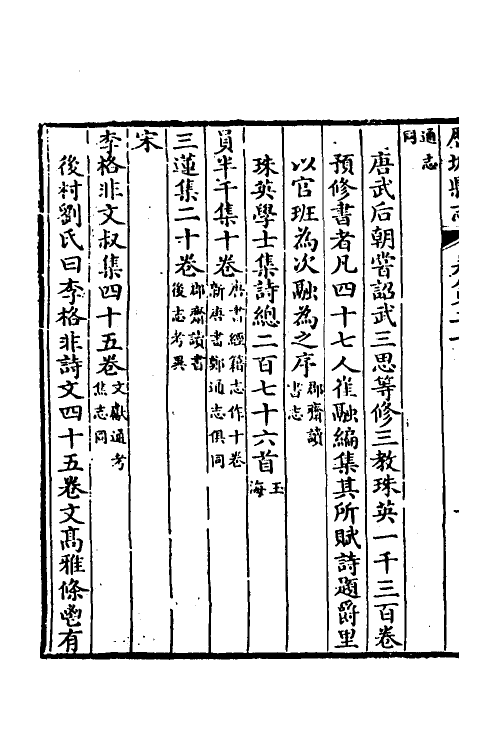 通志
同
唐武后朝嘗詔武三思等修三教珠英一千三百卷
預修書者凡四十七人崔融編集其所賦詩題爵里
以官班為次融為之序郡齋讀書志
珠英學士集詩總二百七十六首玉海
員半千集十卷唐書經籍志作十卷新唐書鄭通志俱同
三蓮集二十卷郡齋讀書後志考異
宋
李格非文叔集四十五卷文獻通考焦志同
後村劉氏曰李格非詩文四十五卷文高雅條鬯有